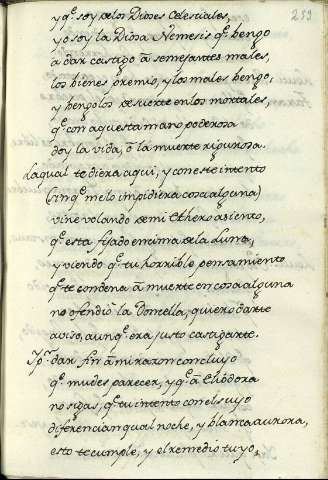 259
y q̃ soy de los Dioses Celestiales,
yo soy la Diosa Nemesis q̃ bengo
a dar castigo á semejantes males,
los bienes premio, y los males bengo,
y bengolos de suerte en los mortales,
q̃ con aquesta mano poderosa
doy la vida, ó la muerte rigurosa.
La qual te diera aqui, y con este intento
(sin q̃ me lo impidiera cosa alguna)
vine volando de mi Ethereo asiento,
q̃ esta fijado encima de la Luna,
y viendo q̃ tu horrible pensamiento
q̃ te condena á muerte en cosa alguna
no ofendio la Donzella, quiero darte
aviso, aunq̃ era justo castigarte.
Y pr̃ dar fin á mi razon concluyo
q̃ mudes parecer, y q̃ á Elhodora
no sigas, q̃ tu intento con el suyo
diferencian qual noche, y blanca aurora,
esto te cumple, y el remedio tuyo,